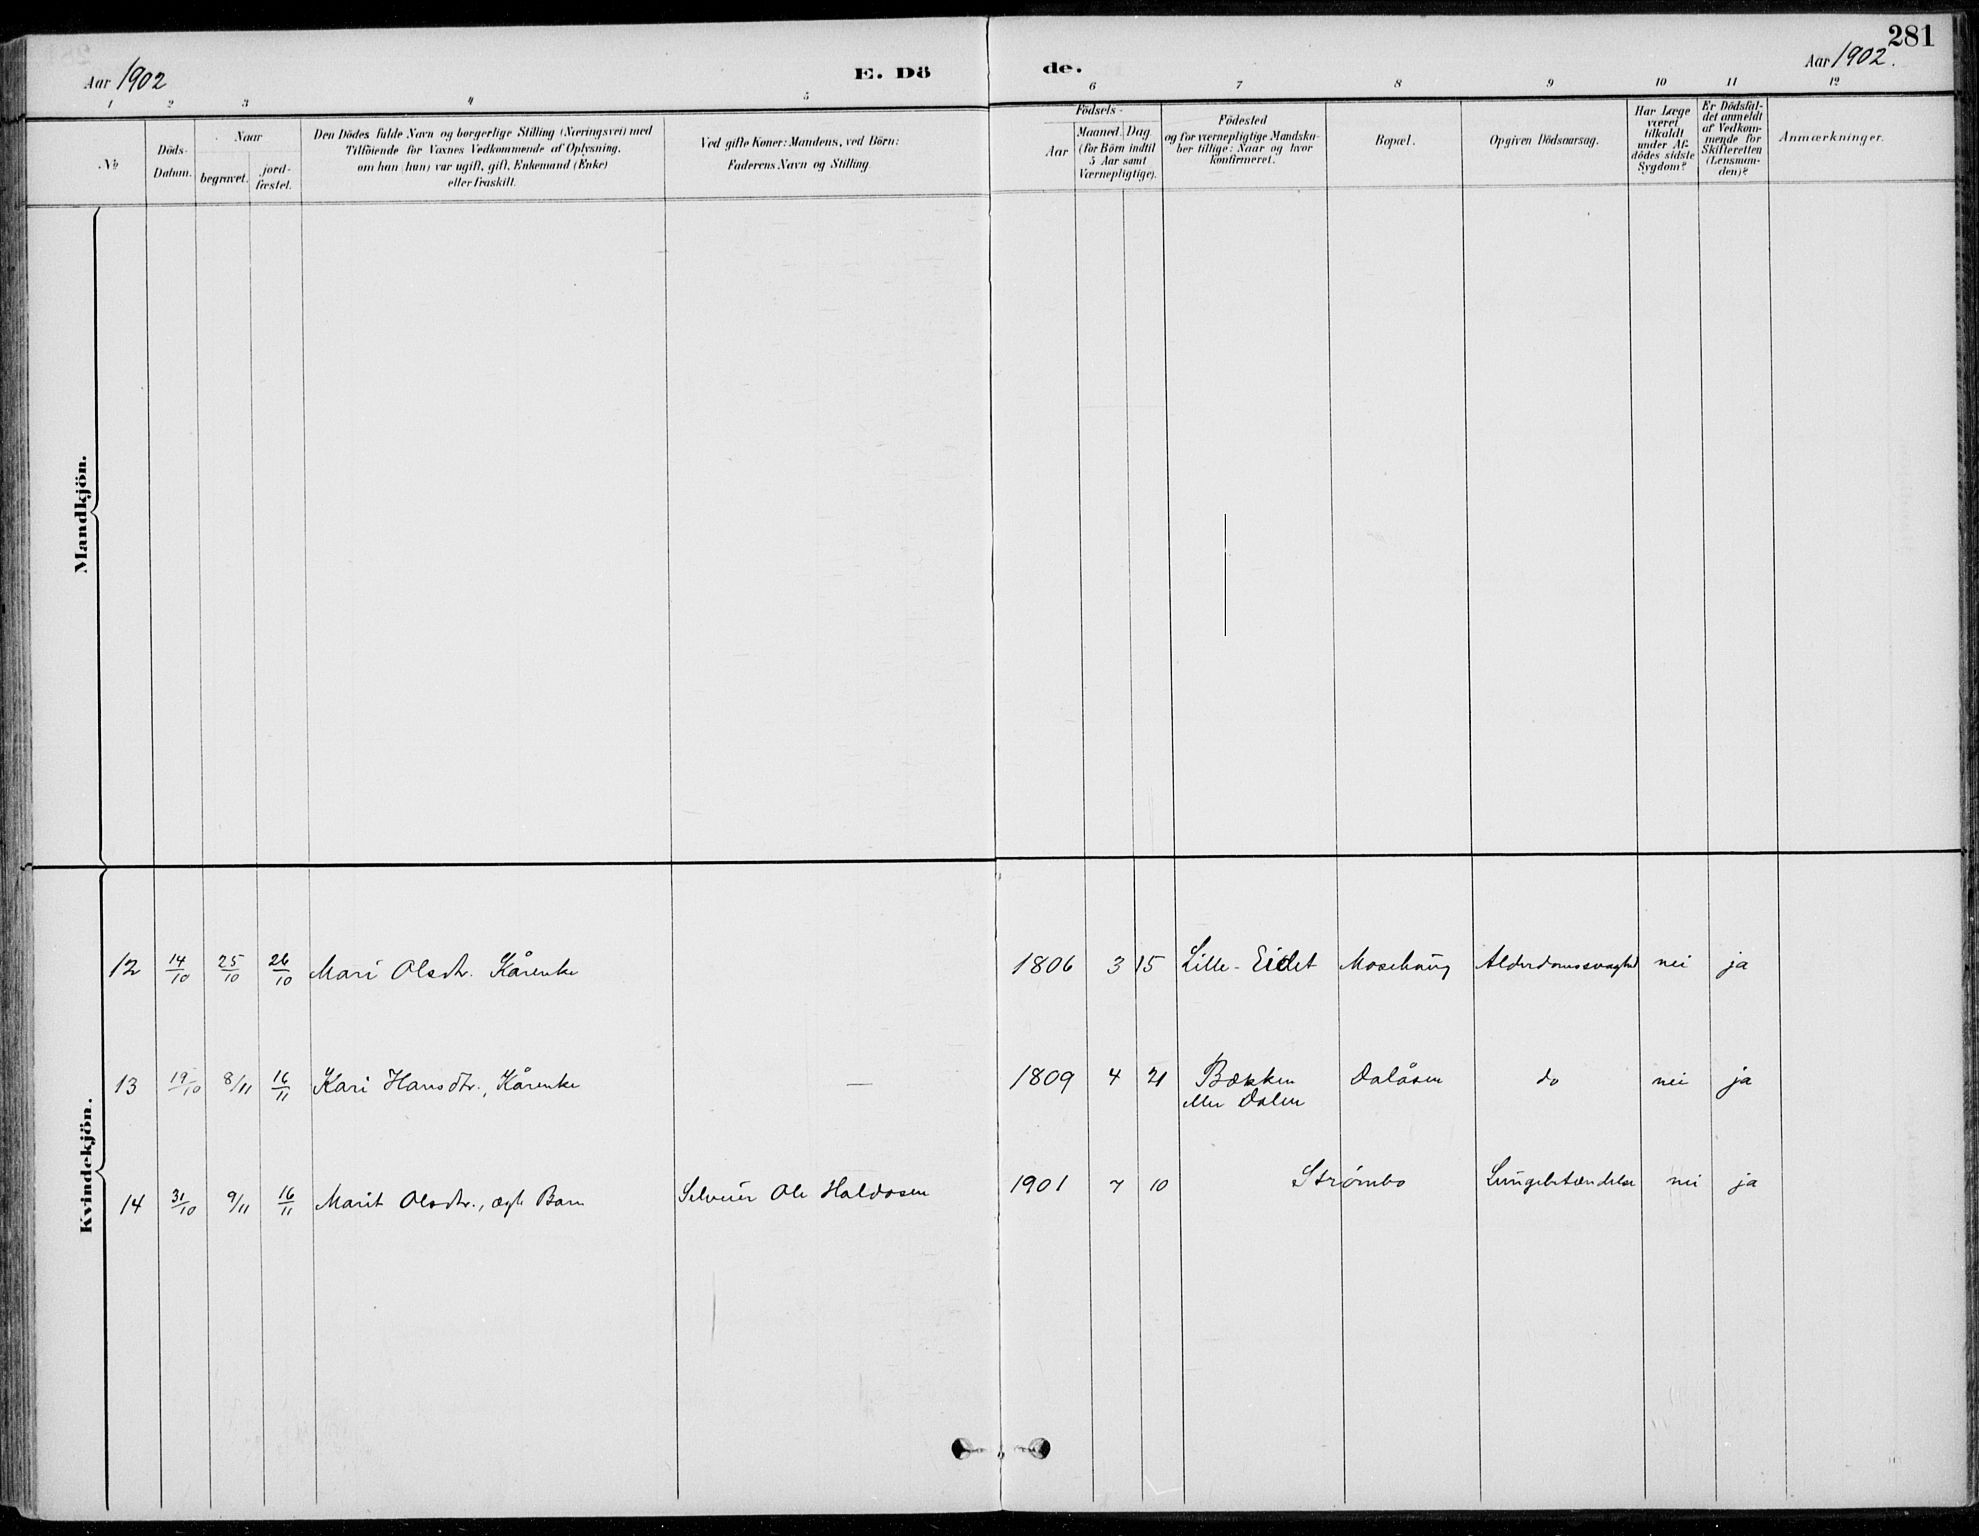 281
Aar 1902
E. Dö
de.
Aar 1902.
1 2 3 4 5 6 7 8 9 10 11 12
№
Döds-
Datum.
Naar
begravet.
jord-
fæstet.
Den Dödes fulde Navn og borgerlige Stilling (Næringsvei) med
Tilföiende for Voxnes Vedkommende af Oplysning,
om han (hun) var ugift, gift, Enkemand (Enke)
eller fraskilt.
Ved gifte Koner: Mandens, ved Börn:
Faderens Navn og Stilling
Födsels-
Aar
Maaned. Dag
(for Börn indtil
5 Aar samt
Værnepligtige).
Födested
og for værnepligtige Mandska-
ber tillige: Naar og hvor
konfirmeret.
Bopæl.
Opgiven Dödsaarsag.
Har Læge
været
tilkaldt
under Af-
dödes sidste
Sygdom?
Er Dödsfal-
det anmeldt
af Vedkom-
mende for
Skifteretten
(Lensman-
den)?
Anmærkninger.
Mandkjön.
Kvindekjön.
12 14/10 25/10 26/10 Mari Olsdtr. Kårenke 1806 3 15 Lille-Eidet Mosehaug Alderdomssvaghed nei ja
13 19/10 8/11 16/11 Kari Hansdtr., Kårenke — 1809 4 21 Bækken Dalåsen do nei ja
eller Dalen
14 31/10 9/11 16/11 Marit Olsdtr., ægte Barn Selveier Ole Haldosen 1901 7 10 Strømbo Lungebetændelse nei ja